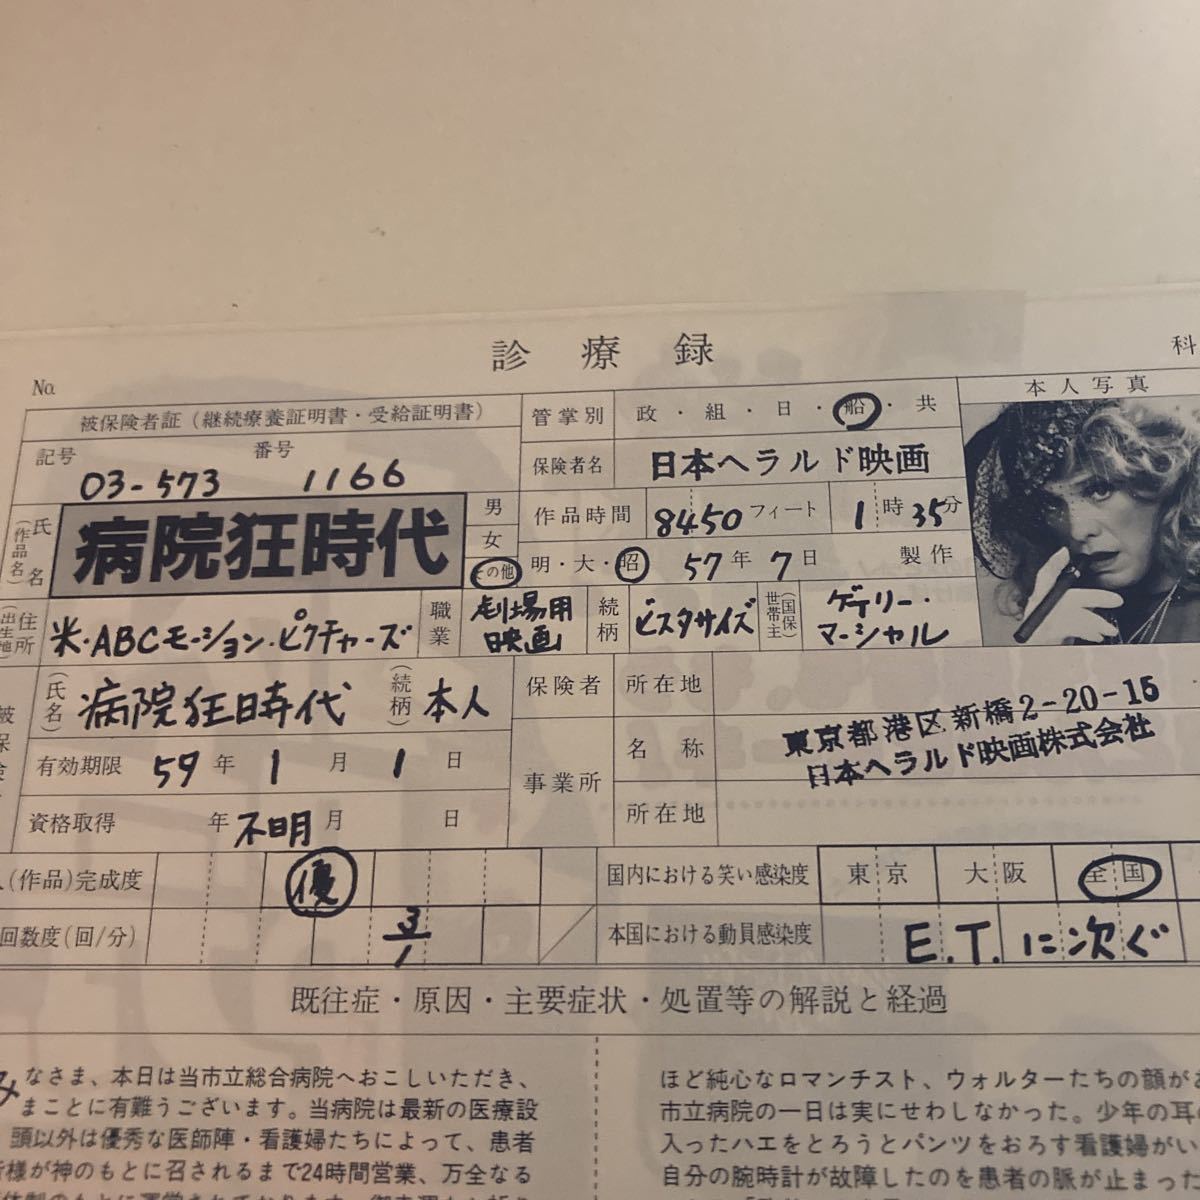 診療録
科
No.
被保険者証（継続療養証明書・受給証明書）
記号 番号
03-573 1166
氏名（作品名）
病院狂時代
男
女
その他
管掌別 政・組・日・船・共
保険者名 日本ヘラルド映画
作品時間 8450フィート 1時35分
明・大・昭 57年7日 製作
本人写真
住所（出生地） 米・ABCモーション・ピクチャーズ
職業 劇場用映画
続柄 ビスタサイズ
世帯主（国保） ゲイリー・マーシャル
（氏名） 病院狂時代 （続柄） 本人
有効期限 59年1月1日
資格取得 年 不明 月 日
保険者 所在地
事業所 名称
所在地
東京都港区新橋2-20-15
日本ヘラルド映画株式会社
（作品）完成度 優
回数度(回/分) 3/1
国内における笑い感染度 東京 大阪 全国
本国における動員感染度 E.T.に次ぐ
既往症・原因・主要症状・処置等の解説と経過
みなさま、本日は当市立総合病院へおこしいただき、
まことに有難うございます。当病院は最新の医療設
頭以外は優秀な医師陣・看護婦たちによって、患者
皆様が神のもとに召されるまで24時間営業、万全なる
ほど純心なロマンチスト、ウォルターたちの顔が
市立病院の一日は実にせわしなかった。少年の耳の
入ったハエをとろうとパンツをおろす看護婦がい
自分の腕時計が故障したのを患者の脈が止まった